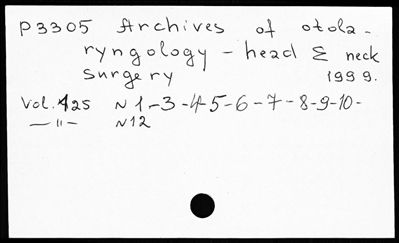 P3305 Archives of otola-
ryngology - head & neck
surgery 1999.
Vol. 125 N 1-3-4-5-6-7-8-9-10-
—"— N12